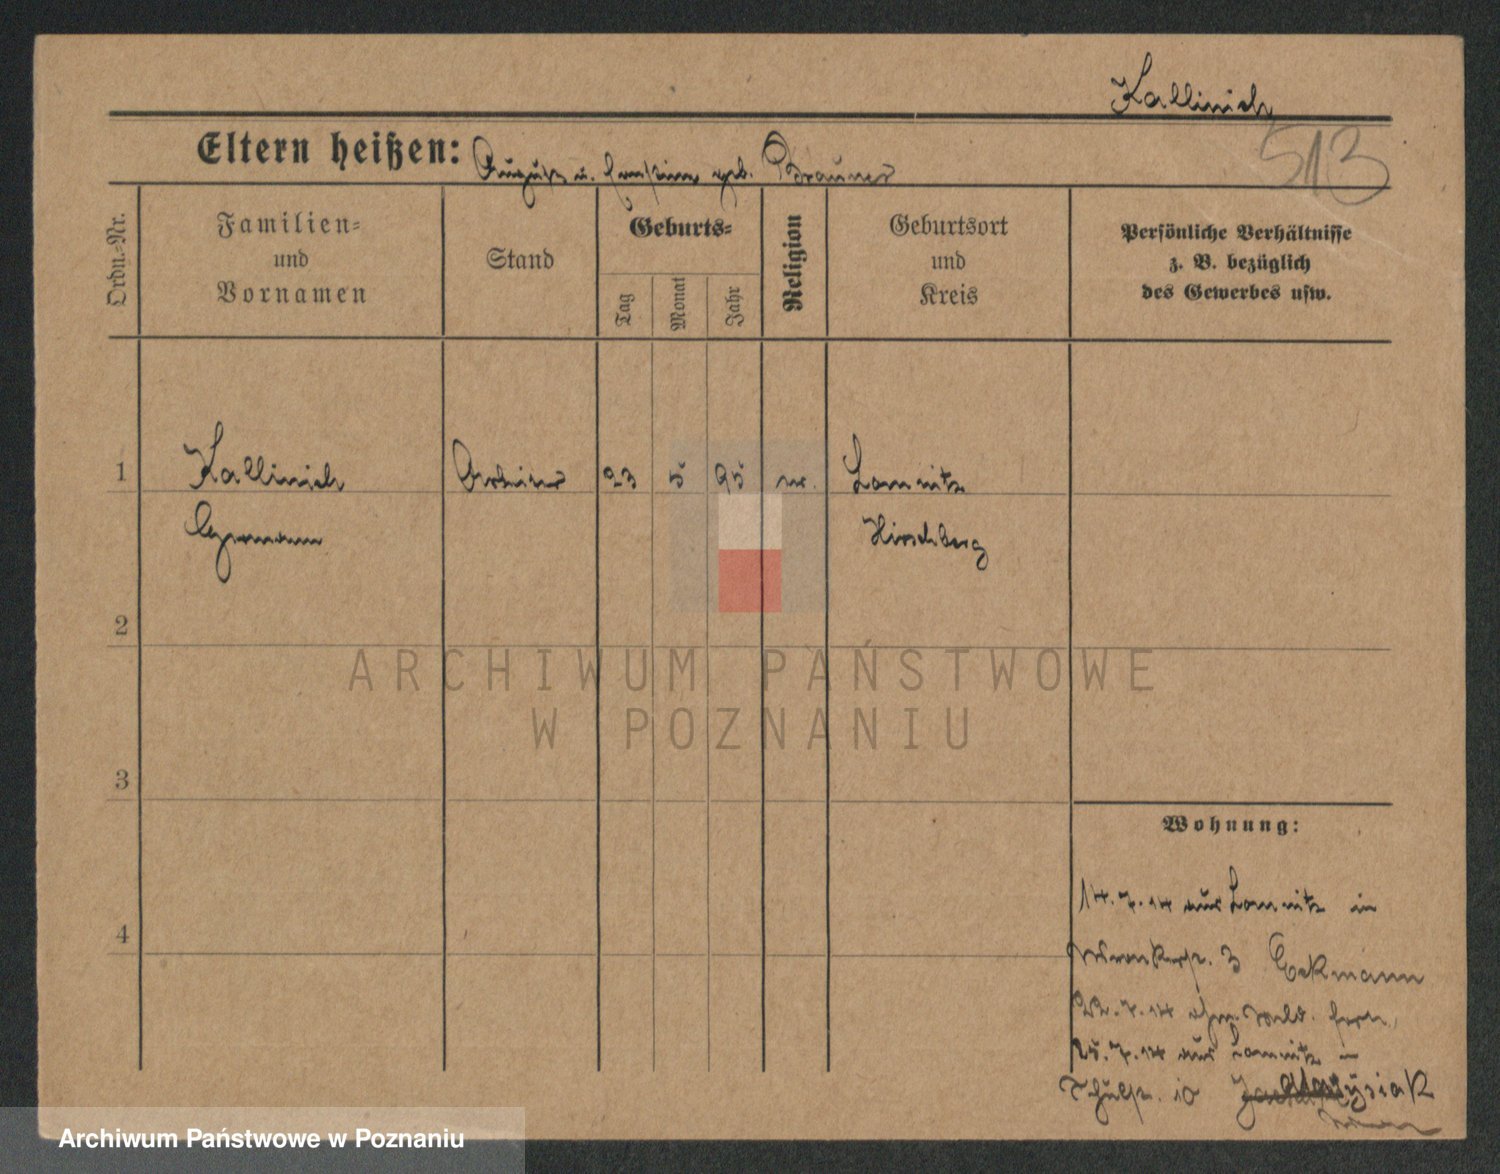 Kallinich
513
Eltern heißen: August u. geb. Brauner
Ordn.-Nr.
Familien-
und
Vornamen
Stand
Geburts-
Tag
Monat
Jahr
Religion
Geburtsort
und
Kreis
Persönliche Verhältnisse
z. B. bezüglich
des Gewerbes usw.
1 Kallinich Arbeiter 23 5 95 Lomnitz
Hermann Hirschberg
2
ARCHIWUM PAŃSTWOWE
W POZNANIU
3
Wohnung:
14.7.14 aus Lomnitz in
3 Eckmann
4
22.7.14
25.7.14 aus Lomnitz in
Schulstr. 10
Archiwum Państwowe w Poznaniu